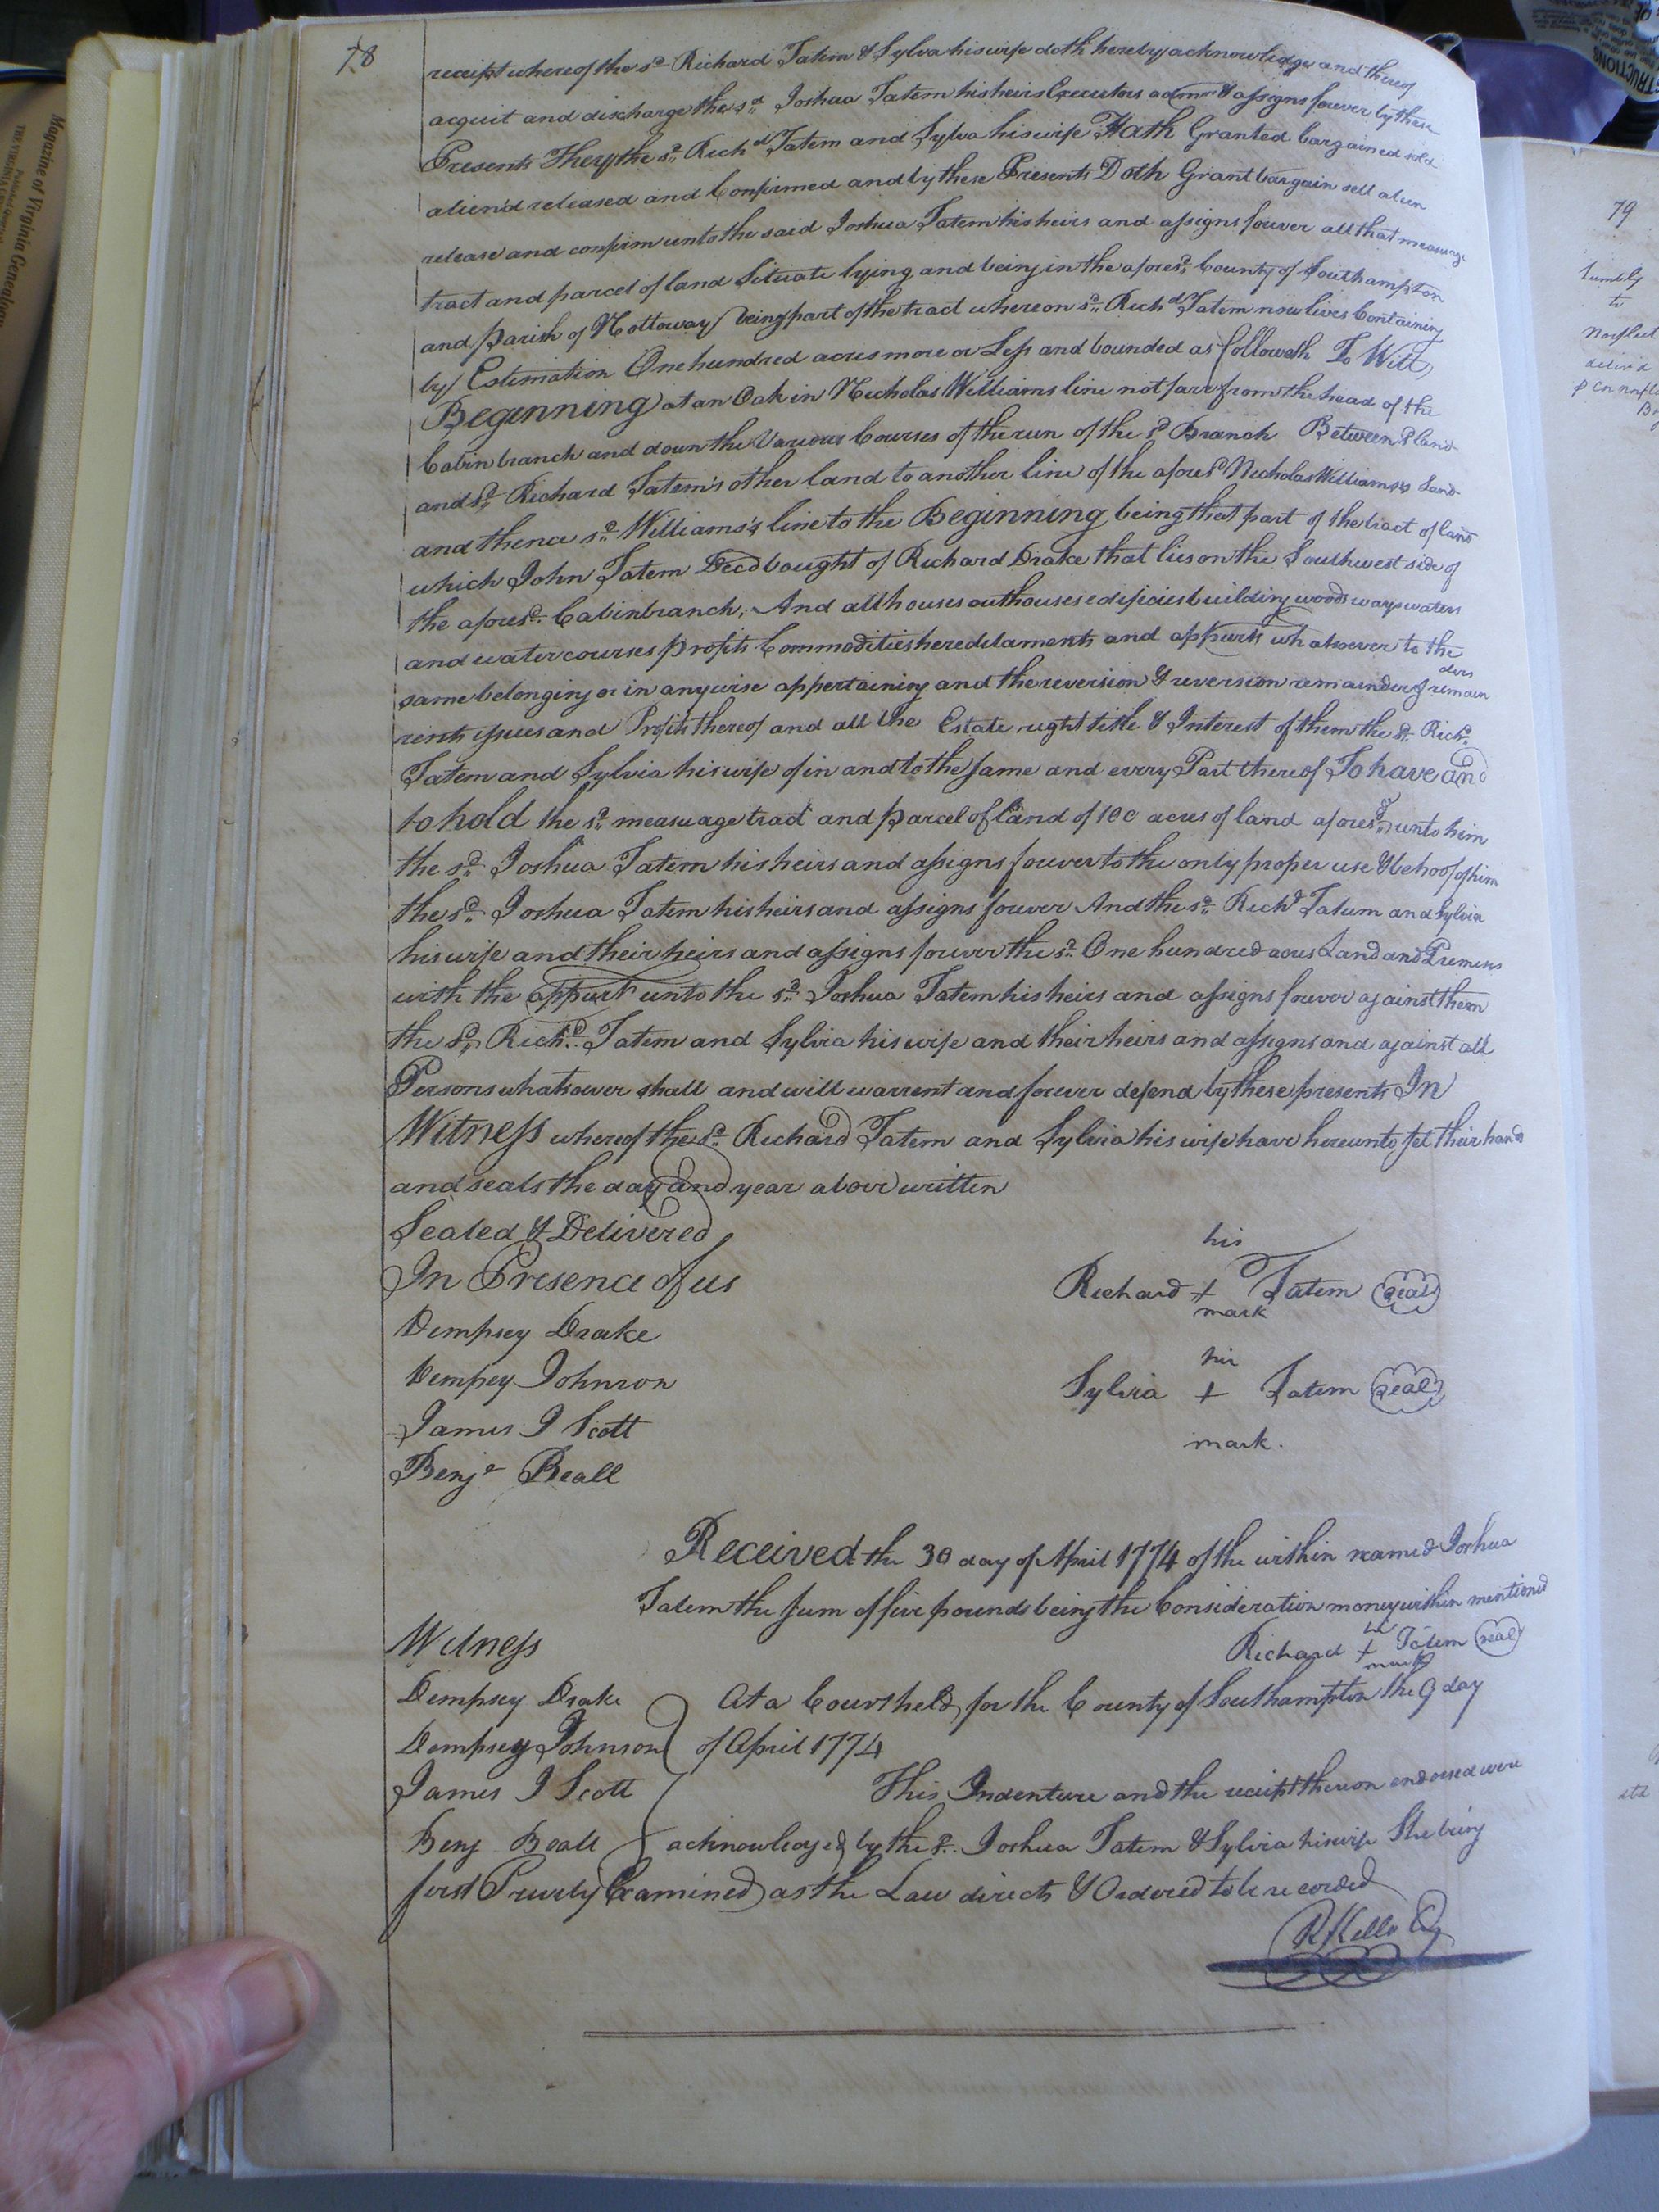 78
receipt whereof the sd. Richard Tatem & Sylva his wife doth hereby acknowledge and thereof
acquit and discharge the sd. Joshua Tatem his heirs Executors admrs & assigns forever by these
Presents They the sd. Richd. Tatem and Sylva his wife Hath Granted bargained sold
aliend released and Confirmed and by these Presents Doth Grant bargain sell alien
release and confirm unto the said Joshua Tatem his heirs and assigns forever all that measuage
tract and parcel of land Situate lying and being in the aforesd. County of Southampton
and parish of Nottoway being part of the tract whereon sd. Richd. Tatem now lives Containing
by Estimation One hundred acres more or Less and bounded as followeth To Witt,
Beginning at an Oak in Nicholas Williams line not farr from the head of the
Cabin branch and down the Various Courses of the run of the sd Branch Between sd land
and sd. Richard Tatem's other land to another line of the aforesd Nicholas Williams's Land
and thence sd. Williams's line to the Beginning being that part of the tract of land
which John Tatem Decd bought of Richard Drake that lies on the Southwest side of
the aforesd. Cabin branch, And all houses outhouses edificies building woods ways waters
and watercourses profits Commodities hereditaments and appurts whatsoever to the
same belonging or in anywise appertaining and the reversion & reversion remainder & remain
ders
rents issues and Profits thereof and all the Estate right title & Interest of them the sd. Richd.
Tatem and Sylvia his wife of in and to the same and every Part thereof To have and
to hold the sd. measuage tract and parcel of land of 100 acres of land aforesd. unto him
the sd. Joshua Tatem his heirs and assigns forever to the only proper use & behoof of him
the sd. Joshua Tatem his heirs and assigns forever And the sd. Richd Tatum and Sylvia
his wife and their heirs and assigns forever the sd. One hundred acres Land and Premises
with the appurt unto the sd. Joshua Tatem his heirs and assigns forever against them
the sd. Richd. Tatem and Sylvia his wife and their heirs and assigns and against all
Persons whatsoever shall and will warrent and forever defend by these presents In
Witness whereof the sd. Richard Tatem and Sylvia his wife have hereunto set their hands
and seals the day and year above written
Sealed & Delivered
In Presence of us
Dempsey Drake
Dempey Johnson
James J Scott
Benja Beall
his
Richard + Tatem seal
mark
her
Sylvia + Tatem seal
mark.
Received the 30 day of April 1774 of the within named Joshua
Tatem the sum of five pounds being the Consideration money within mentioned
his
Witness Richard + Tatem seal
mark
Dempsey Drake At a Court held for the County of Southampton the 9 day
Dempsey Johnson of April 1774
James J Scott This Indenture and the reciept thereon endorsed were
Benj Beall acknowleged by the sd. Joshua Tatem & Sylvia his wife She being
first Privily Examined as the Law directs & Ordered to be recorded
R Kello
79
to
Norfleet
Magazine of Virginia Genealogy